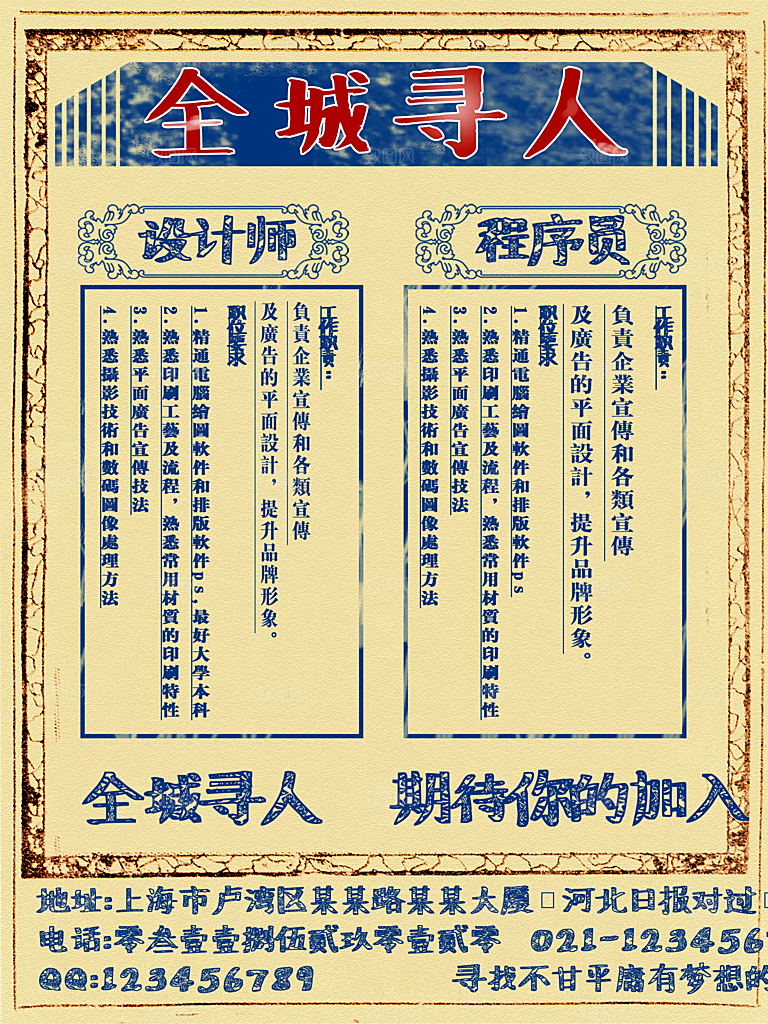 全城寻人
设计师
工作职责:
負責企業宣傳和各類宣傳
及廣告的平面設計，提升品牌形象。
职位要求
1.精通電腦繪圖軟件和排版軟件ps,最好大學本科
2.熟悉印刷工藝及流程，熟悉常用材質的印刷特性
3.熟悉平面廣告宣傳技法
4.熟悉攝影技術和數碼圖像處理方法
程序员
工作职责:
負責企業宣傳和各類宣傳
及廣告的平面設計，提升品牌形象。
职位要求
1.精通電腦繪圖軟件和排版軟件ps
2.熟悉印刷工藝及流程，熟悉常用材質的印刷特性
3.熟悉平面廣告宣傳技法
4.熟悉攝影技術和數碼圖像處理方法
全城寻人
期待你的加入
地址:上海市卢湾区某某路某某大厦 河北日报对过
电话:零叁壹壹捌伍贰玖零壹贰零 021-1234567
QQ:123456789
寻找不甘平庸有梦想的